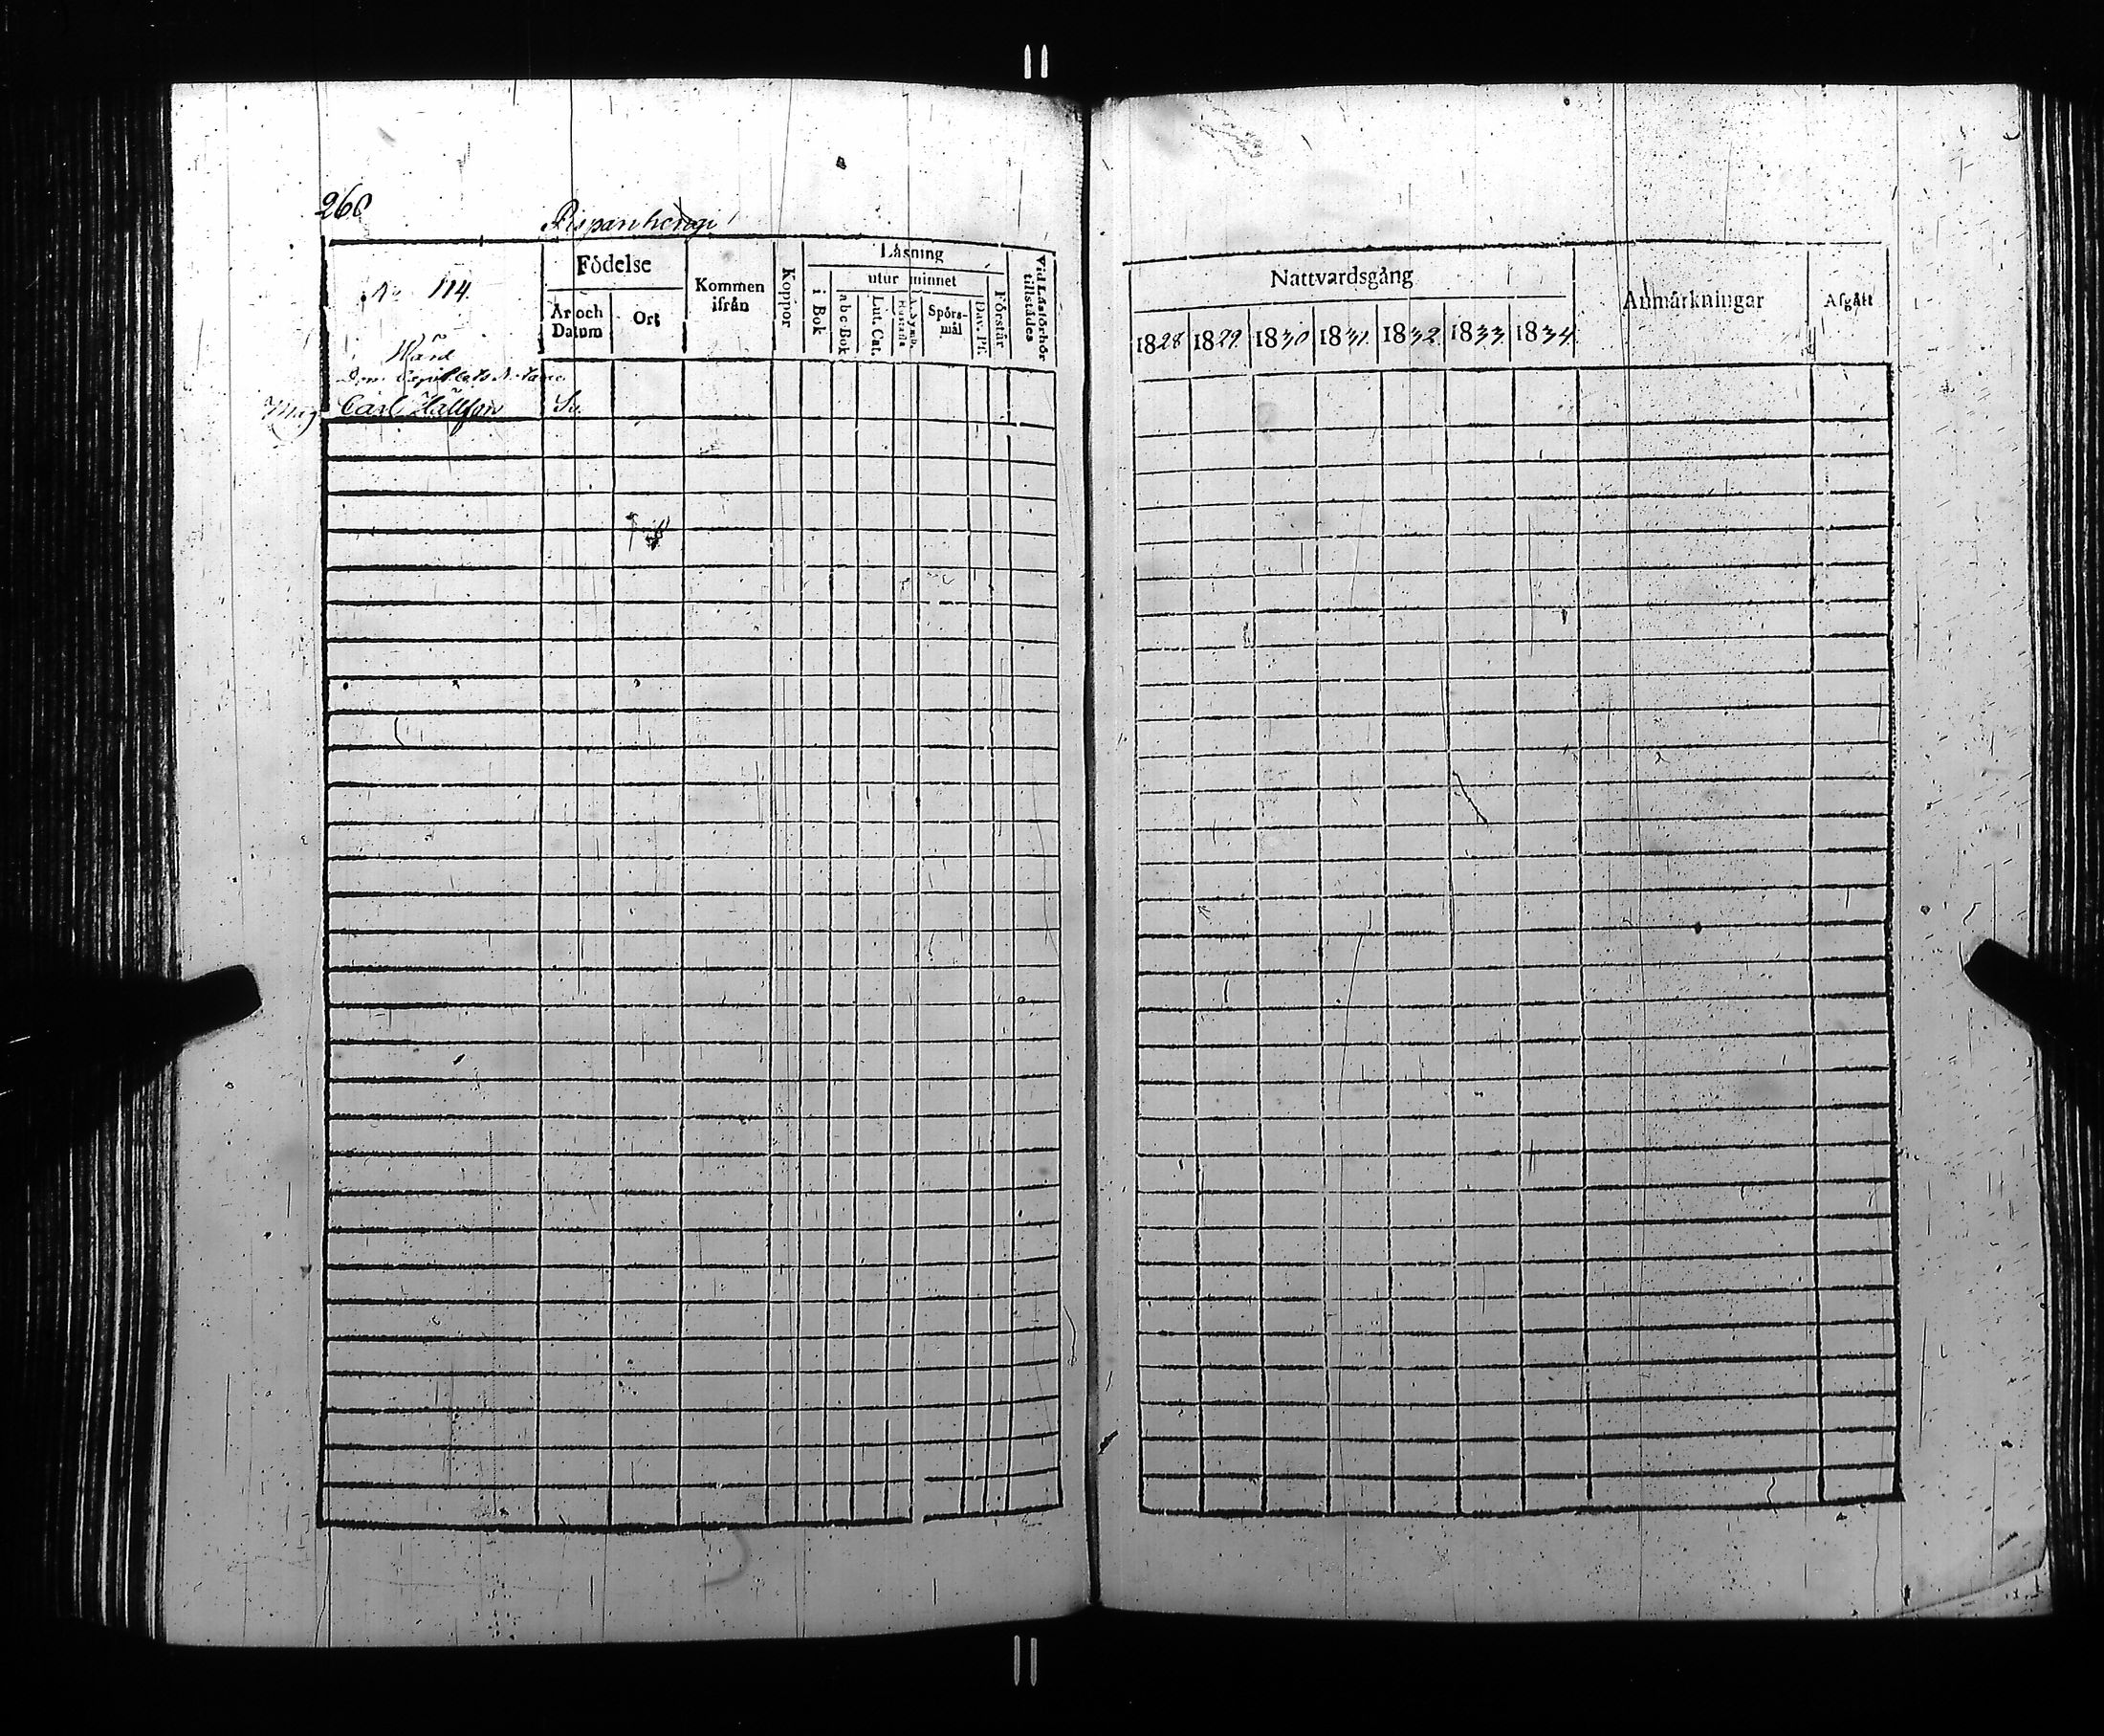 260
No 114.
Födelse
År och Datum
Ort
Kommen ifrån
Koppor
Läsning
utur minnet
i Bok
abc-Bok
Lut. Cat.
Spörs-mål
Dav. Ps.
Förstår
Vid Läsförhör tillstädes
Wärd
Mag Carl Hällfon
Nattvardsgång
1828 1829 1830 1831 1832 1833 1834
Anmärkningar
Afgått